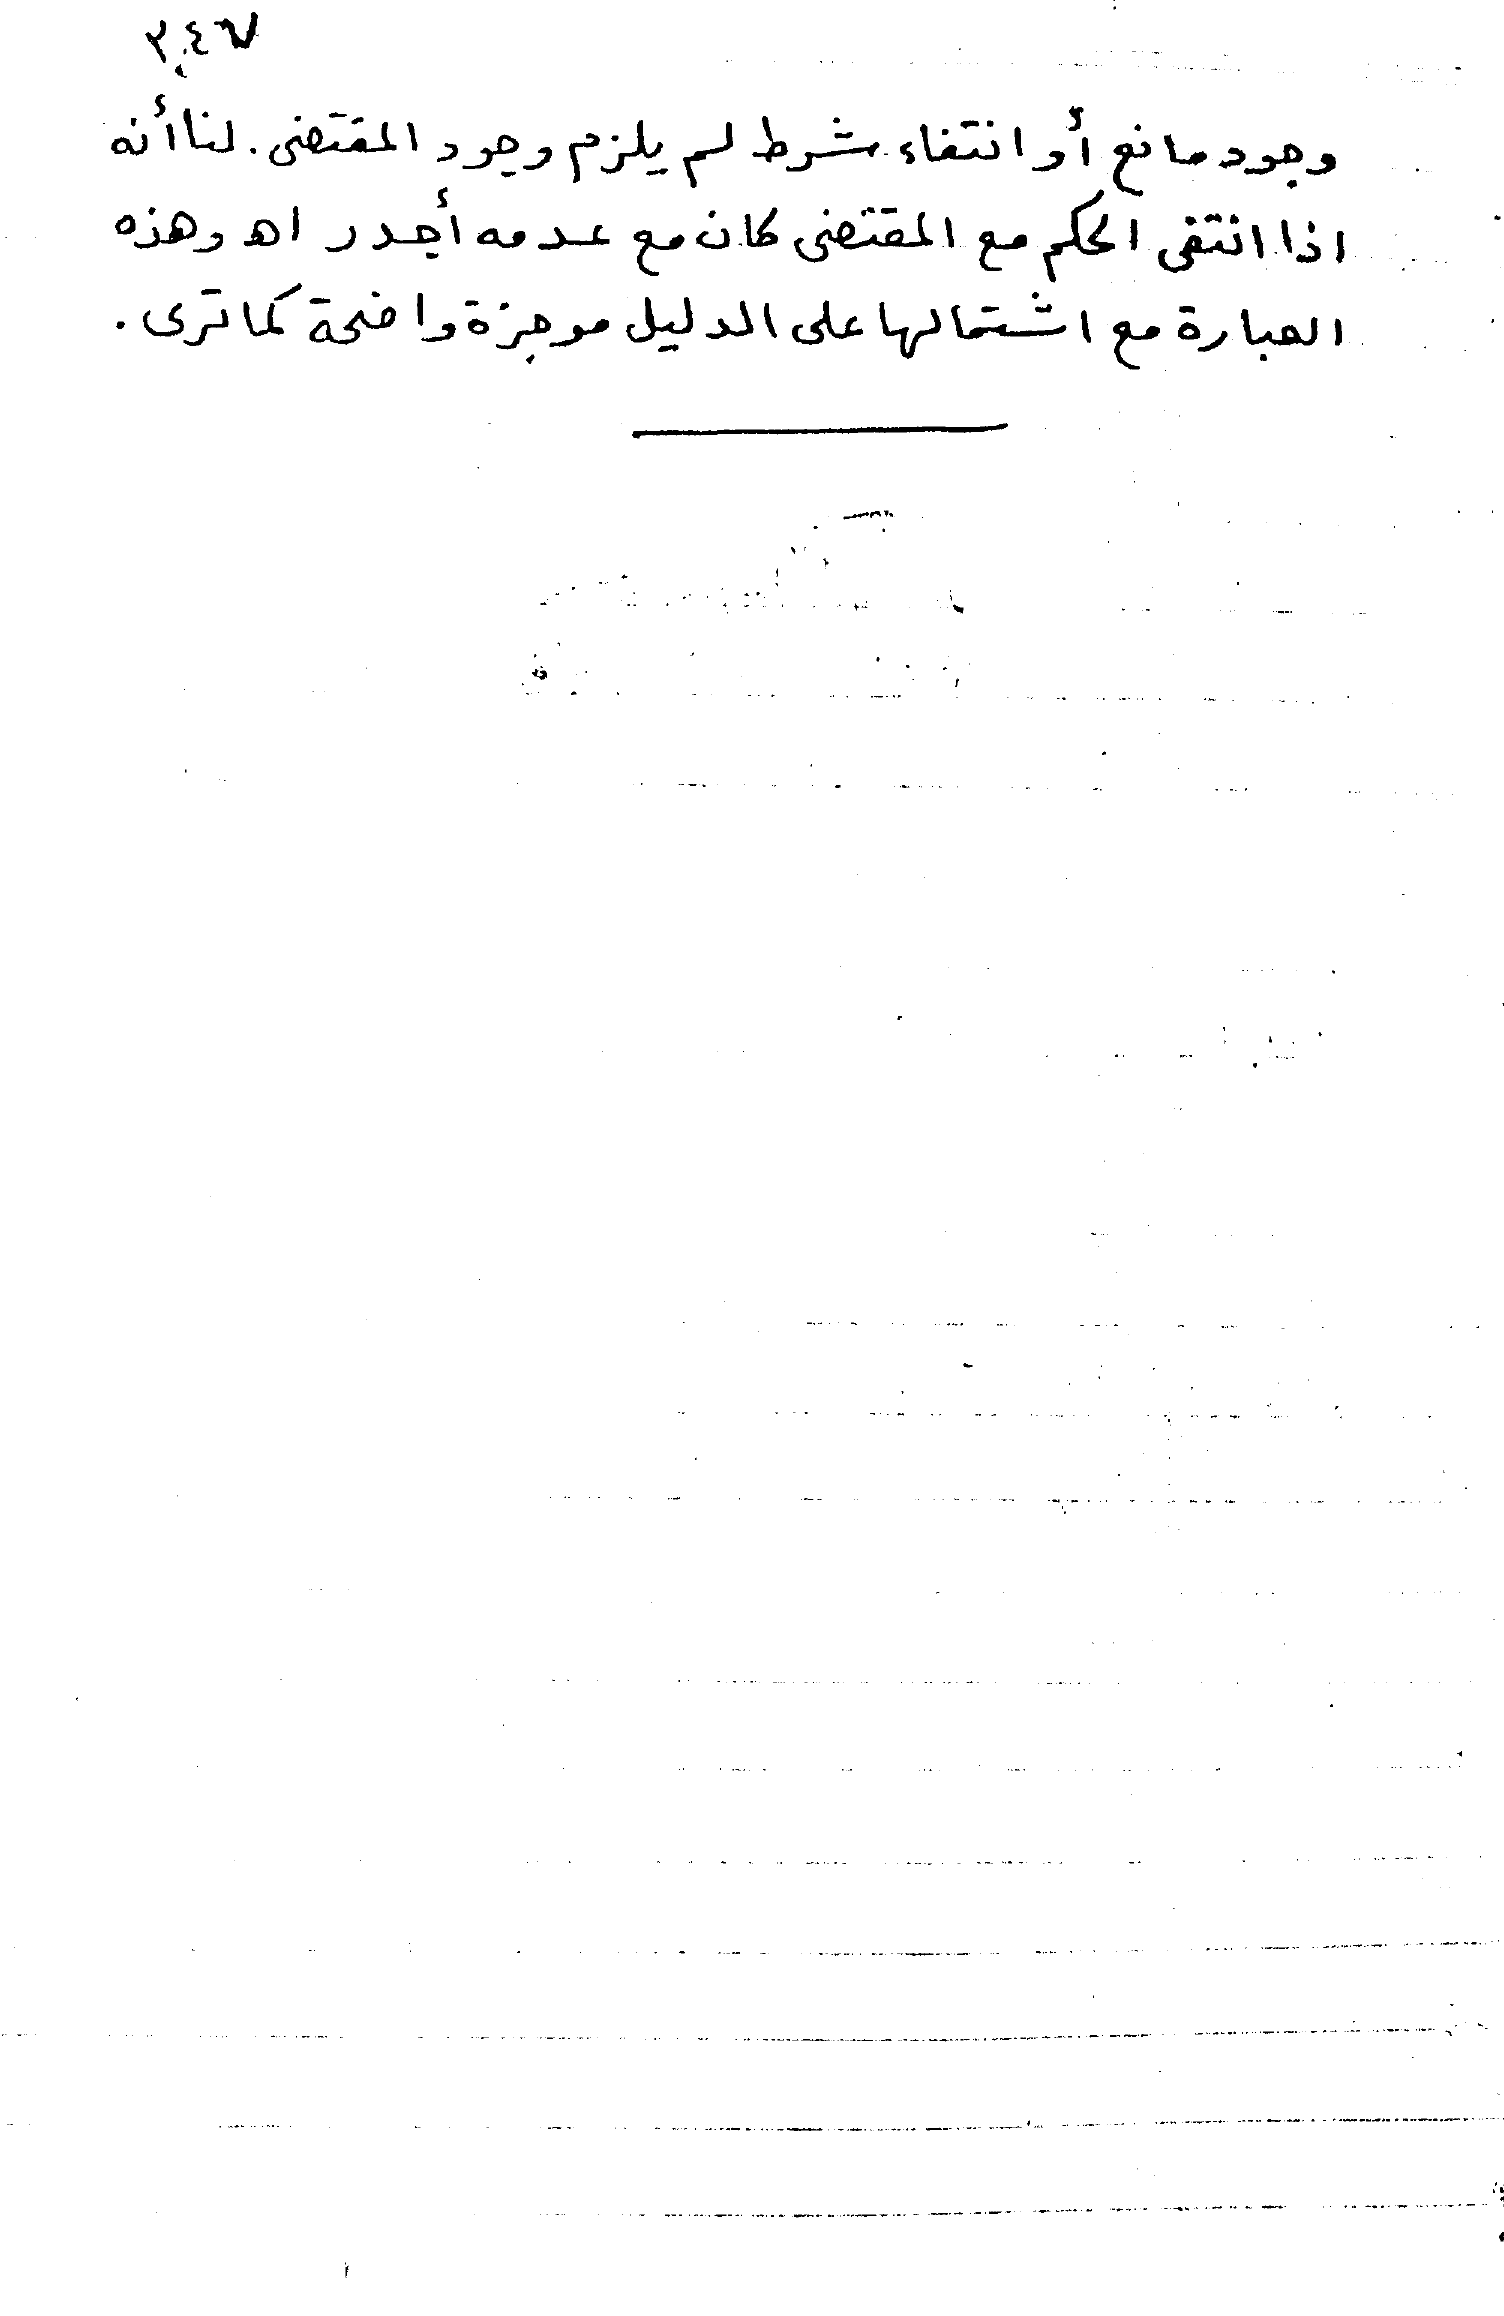 ٣٤٧
وجود مانع أو انتفاء شرط لم يلزم وجود المقتضى. لنا أنه
اذا انتفى الحكم مع المقتضى كان مع عدمه أجدر اه وهذه
العبارة مع اشتمالها على الدليل موجزة واضحة كما ترى .